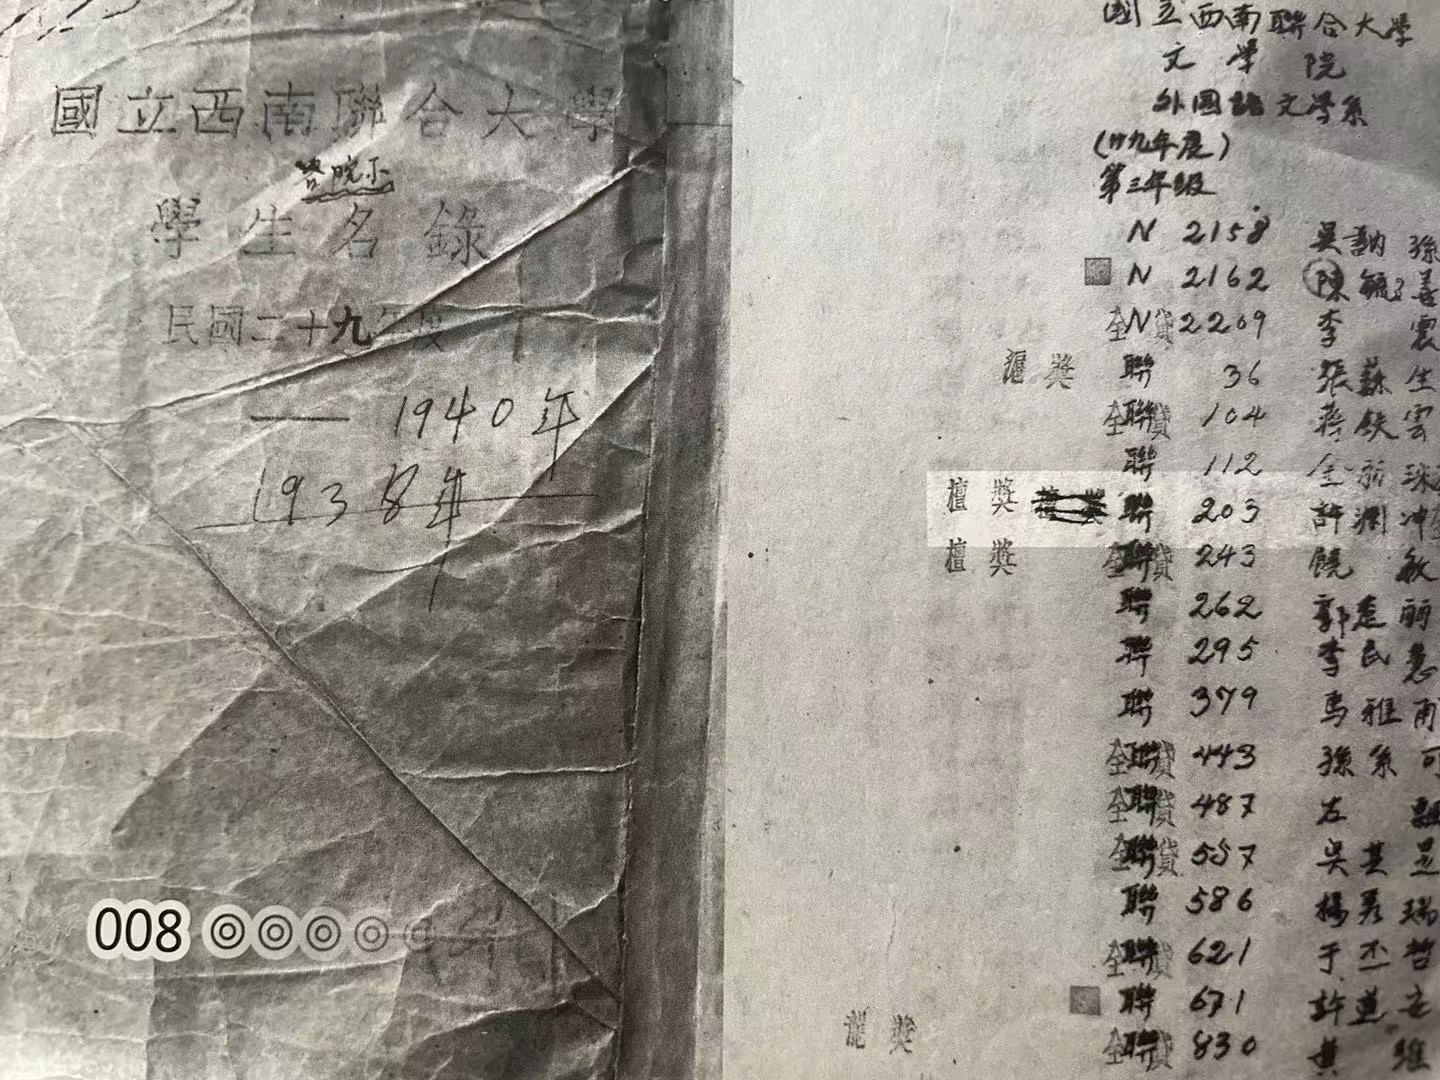 國立西南聯合大學
學生名錄
民國二十九年度
1940年
1938年
008
國立西南聯合大學
文學院
外國語文學系
(廿九年度)
第三年級
N 2158 吳訥孫
N 2162 陳毓善
全貸 N 2209 李震
滬獎 聯 36 張蘇生
全貸 聯 104 蔣鉄雲
聯 112 金
檀獎 聯 203 許淵冲
檀獎 全貸 聯 243 饒敏
聯 262 郭楚丽
聯 295 李民慧
聯 379 馬雅
全貸 聯 443 孫系可
全貸 聯 487 左
全貸 聯 557 吳其昱
聯 586 楊秀瑞
全貸 聯 621 于丕哲
聯 671 許道
龍獎 全貸 聯 830 黄維